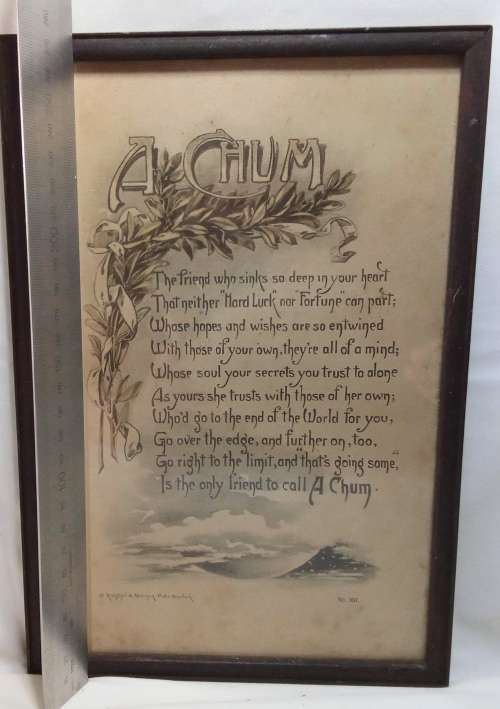 A CHUM
The friend who sinks so deep in your heart
That neither "Hard Luck" nor "Fortune" can part;
Whose hopes and wishes are so entwined
With those of your own, they're all of a mind;
Whose soul your secrets you trust to alone
As yours she trusts with those of her own;
Who'd go to the end of the World for you,
Go over the edge, and further on, too,
Go right to the limit, and "that's going some,"
Is the only friend to call A Chum.